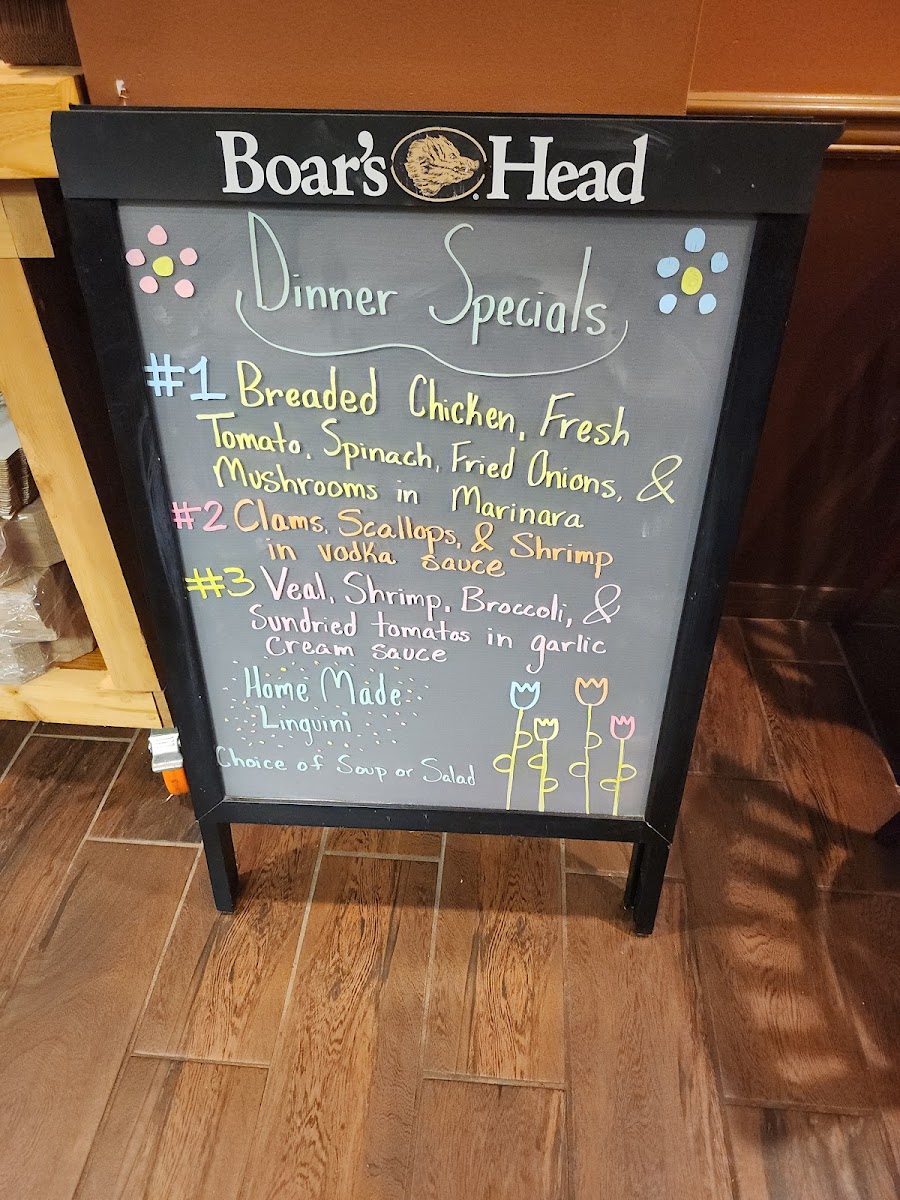 Boar's Head
Dinner Specials
#1 Breaded Chicken, Fresh
Tomato, Spinach, Fried Onions, &
Mushrooms in Marinara
#2 Clams, Scallops, & Shrimp
in vodka sauce
#3 Veal, Shrimp, Broccoli, &
Sundried tomatos in garlic
Cream sauce
Home Made
Linguini
Choice of Soup or Salad